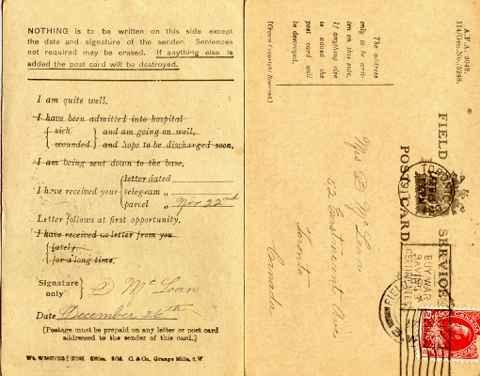 NOTHING is to be written on this side except
the date and signature of the sender. Sentences
not required may be erased. If anything else is
added the post card will be destroyed.
I am quite well.
I have been admitted into hospital
sick and am going on well.
wounded and hope to be discharged soon.
I am being sent down to the base.
letter dated
I have received your telegram „
parcel „ Nov 22nd
Letter follows at first opportunity.
I have received no letter from you
lately
for a long time.
Signature only D McLean
Date December 26th
[Postage must be prepaid on any letter or post card
addressed to the sender of this card.]
& Co., Grange Mills, S.W.
The address
only to be writ-
ten on this side.
If anything else
is added the
post card will
be destroyed.
[Crown Copyright Reserved]
A.F.A. 2042.
114/Gen.No./5248.
FIELD SERVICE
POST CARD.
Mrs D McLean
52 Eastmount Ave
Toronto
Canada
FIELD
BUY WAR
SAVINGS
CERTIFICATES
CANADA